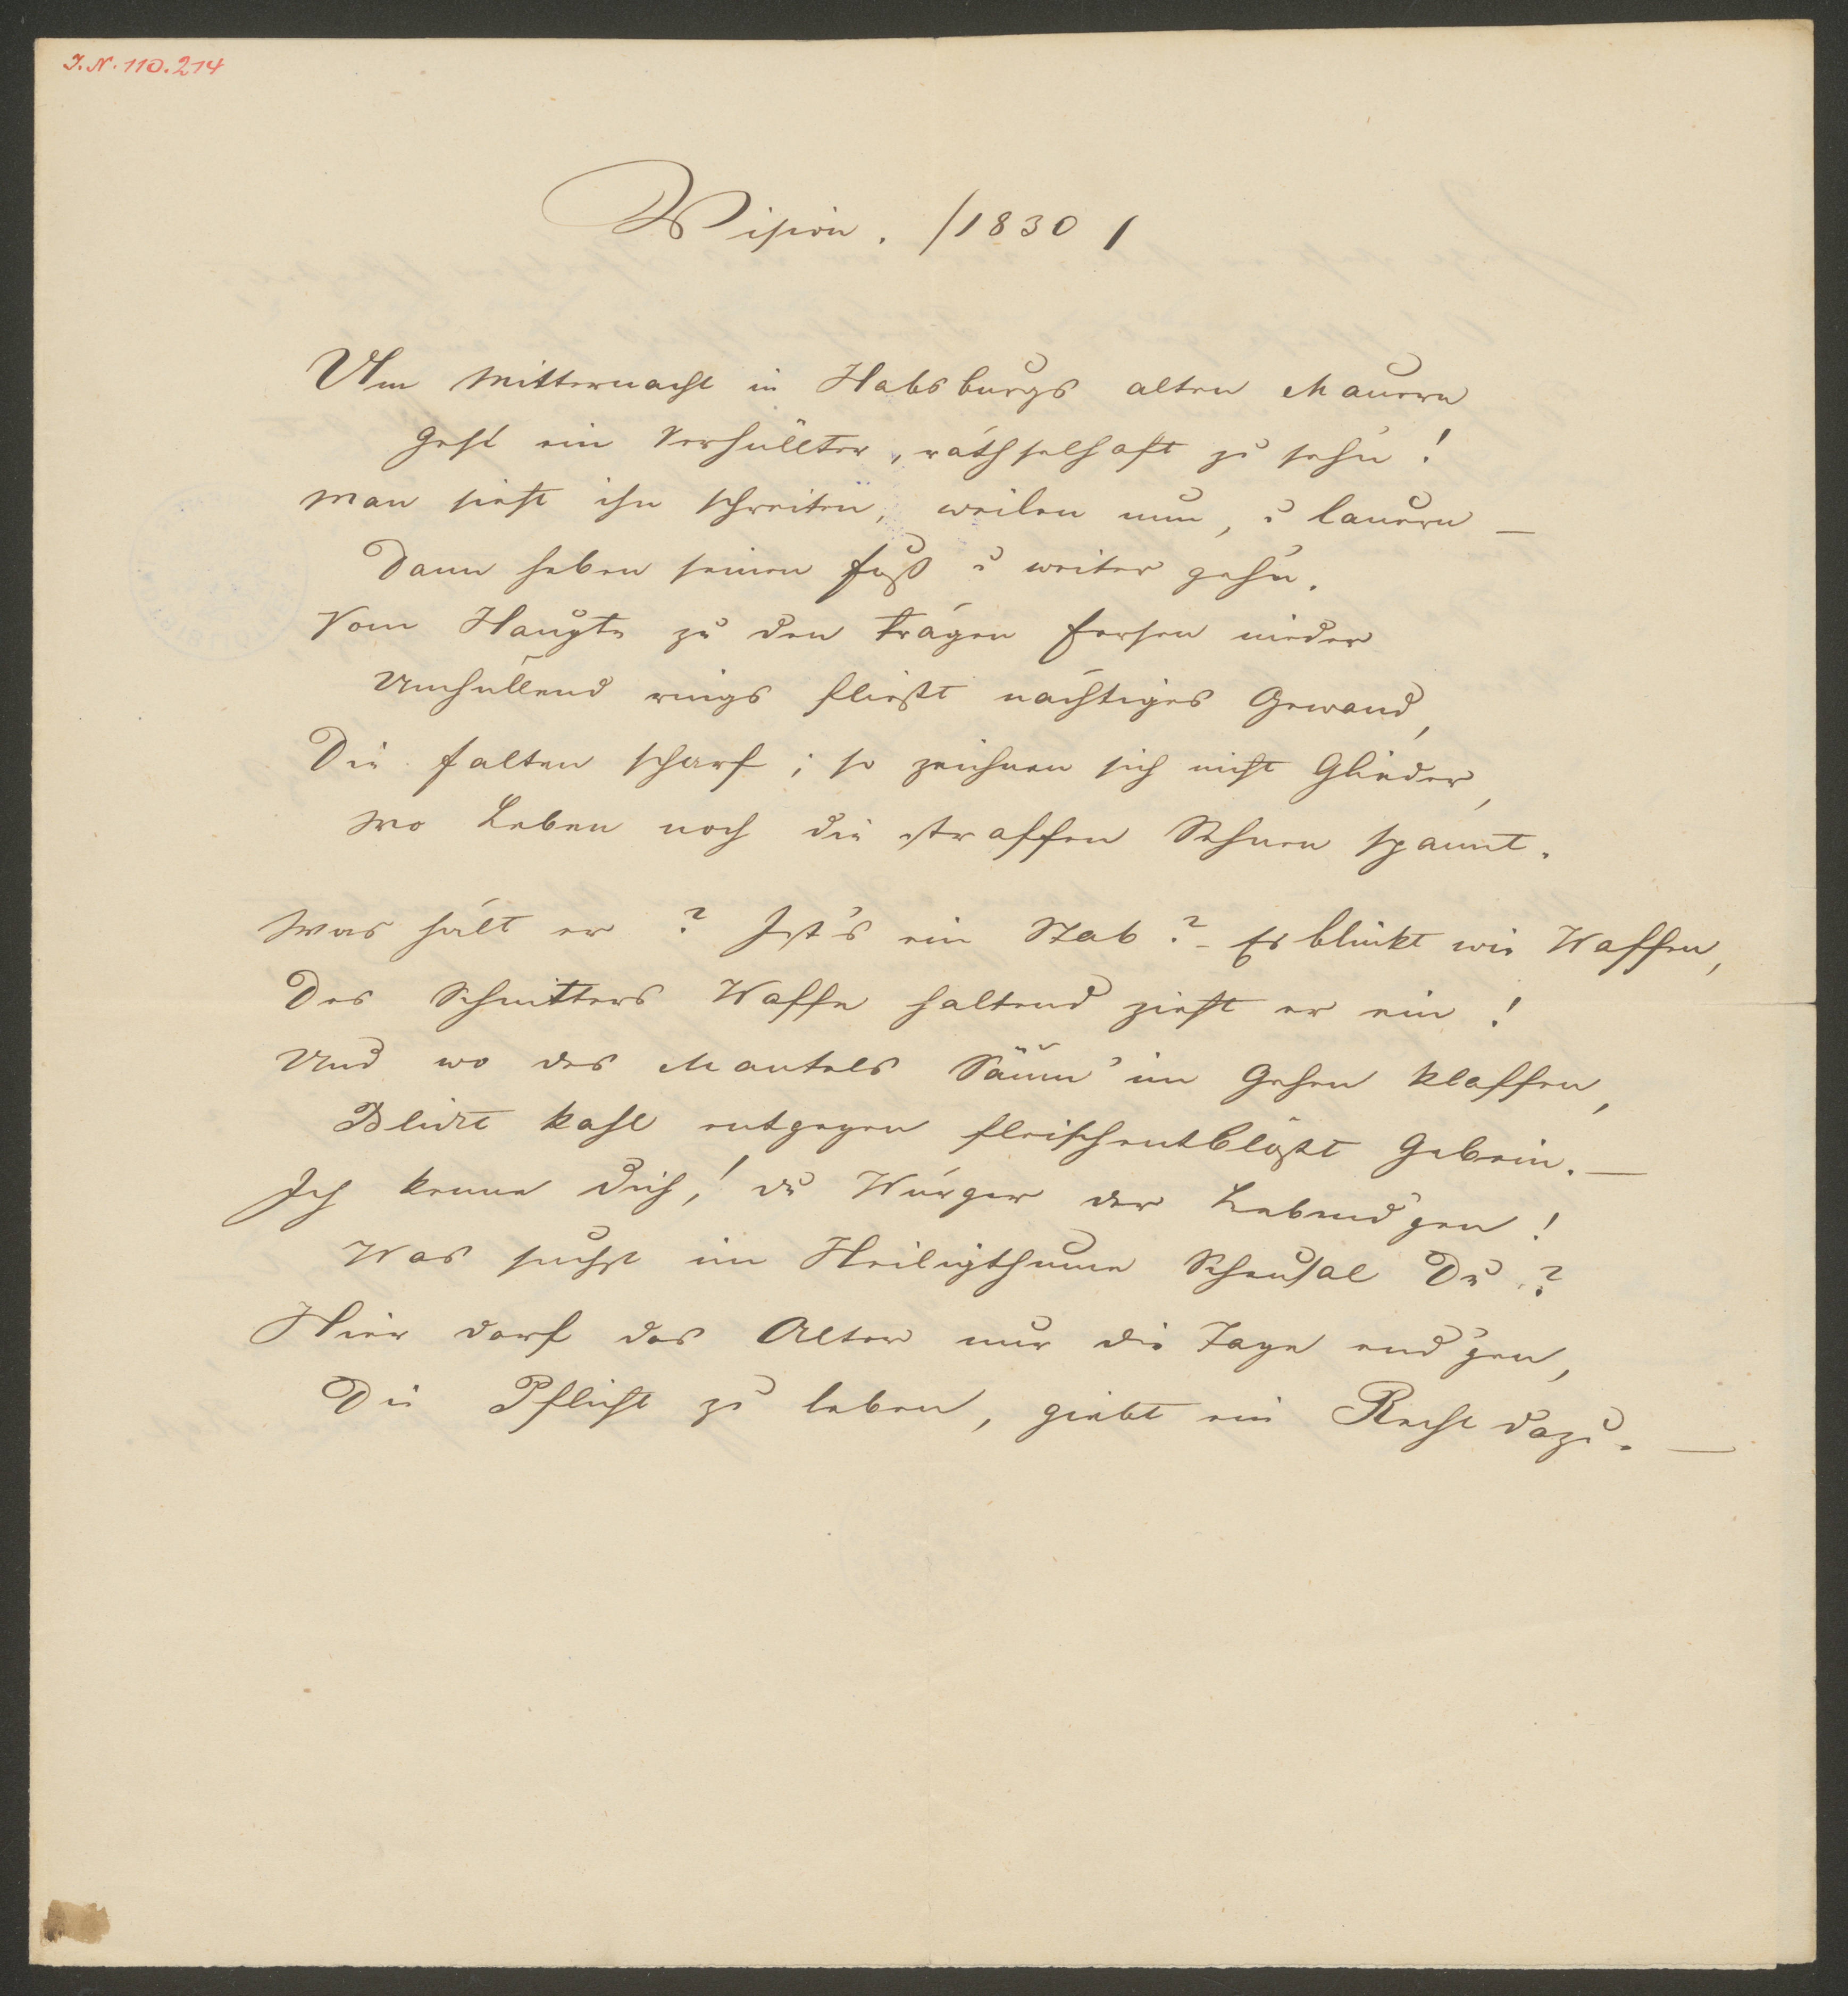 J.N. 110.214
Vision. /1830/
Um Mitternacht in Habsburgs alten Mauern
Geht ein Verhüllter, räthselhaft zu sehn!
Man sieht ihn schreiten, weilen nun, u lauern —
Dann heben seinen Fuß u weiter gehn.
Vom Haupte zu den trägen Fersen nieder
Umhüllend rings fließt nächtiges Gewand,
Die Falten scharf; so zeichnen sich nicht Glieder,
Wo Leben noch die straffen Sehnen spannt.
Was hält er? Ist's ein Stab? – Es blinkt wie Waffen,
Des Schnitters Waffe haltend zieht er ein!
Und wo des Mantels Säum' im Gehen klaffen,
Blickt kahl entgegen fleischentblößt Gebein. —
Ich kenne Dich,! du Würger der Lebend'gen!
Was suchst im Heiligthume Scheusal Du?
Hier darf das Alter nur die Tage end'gen,
Die Pflicht zu leben, giebt ein Recht dazu. —